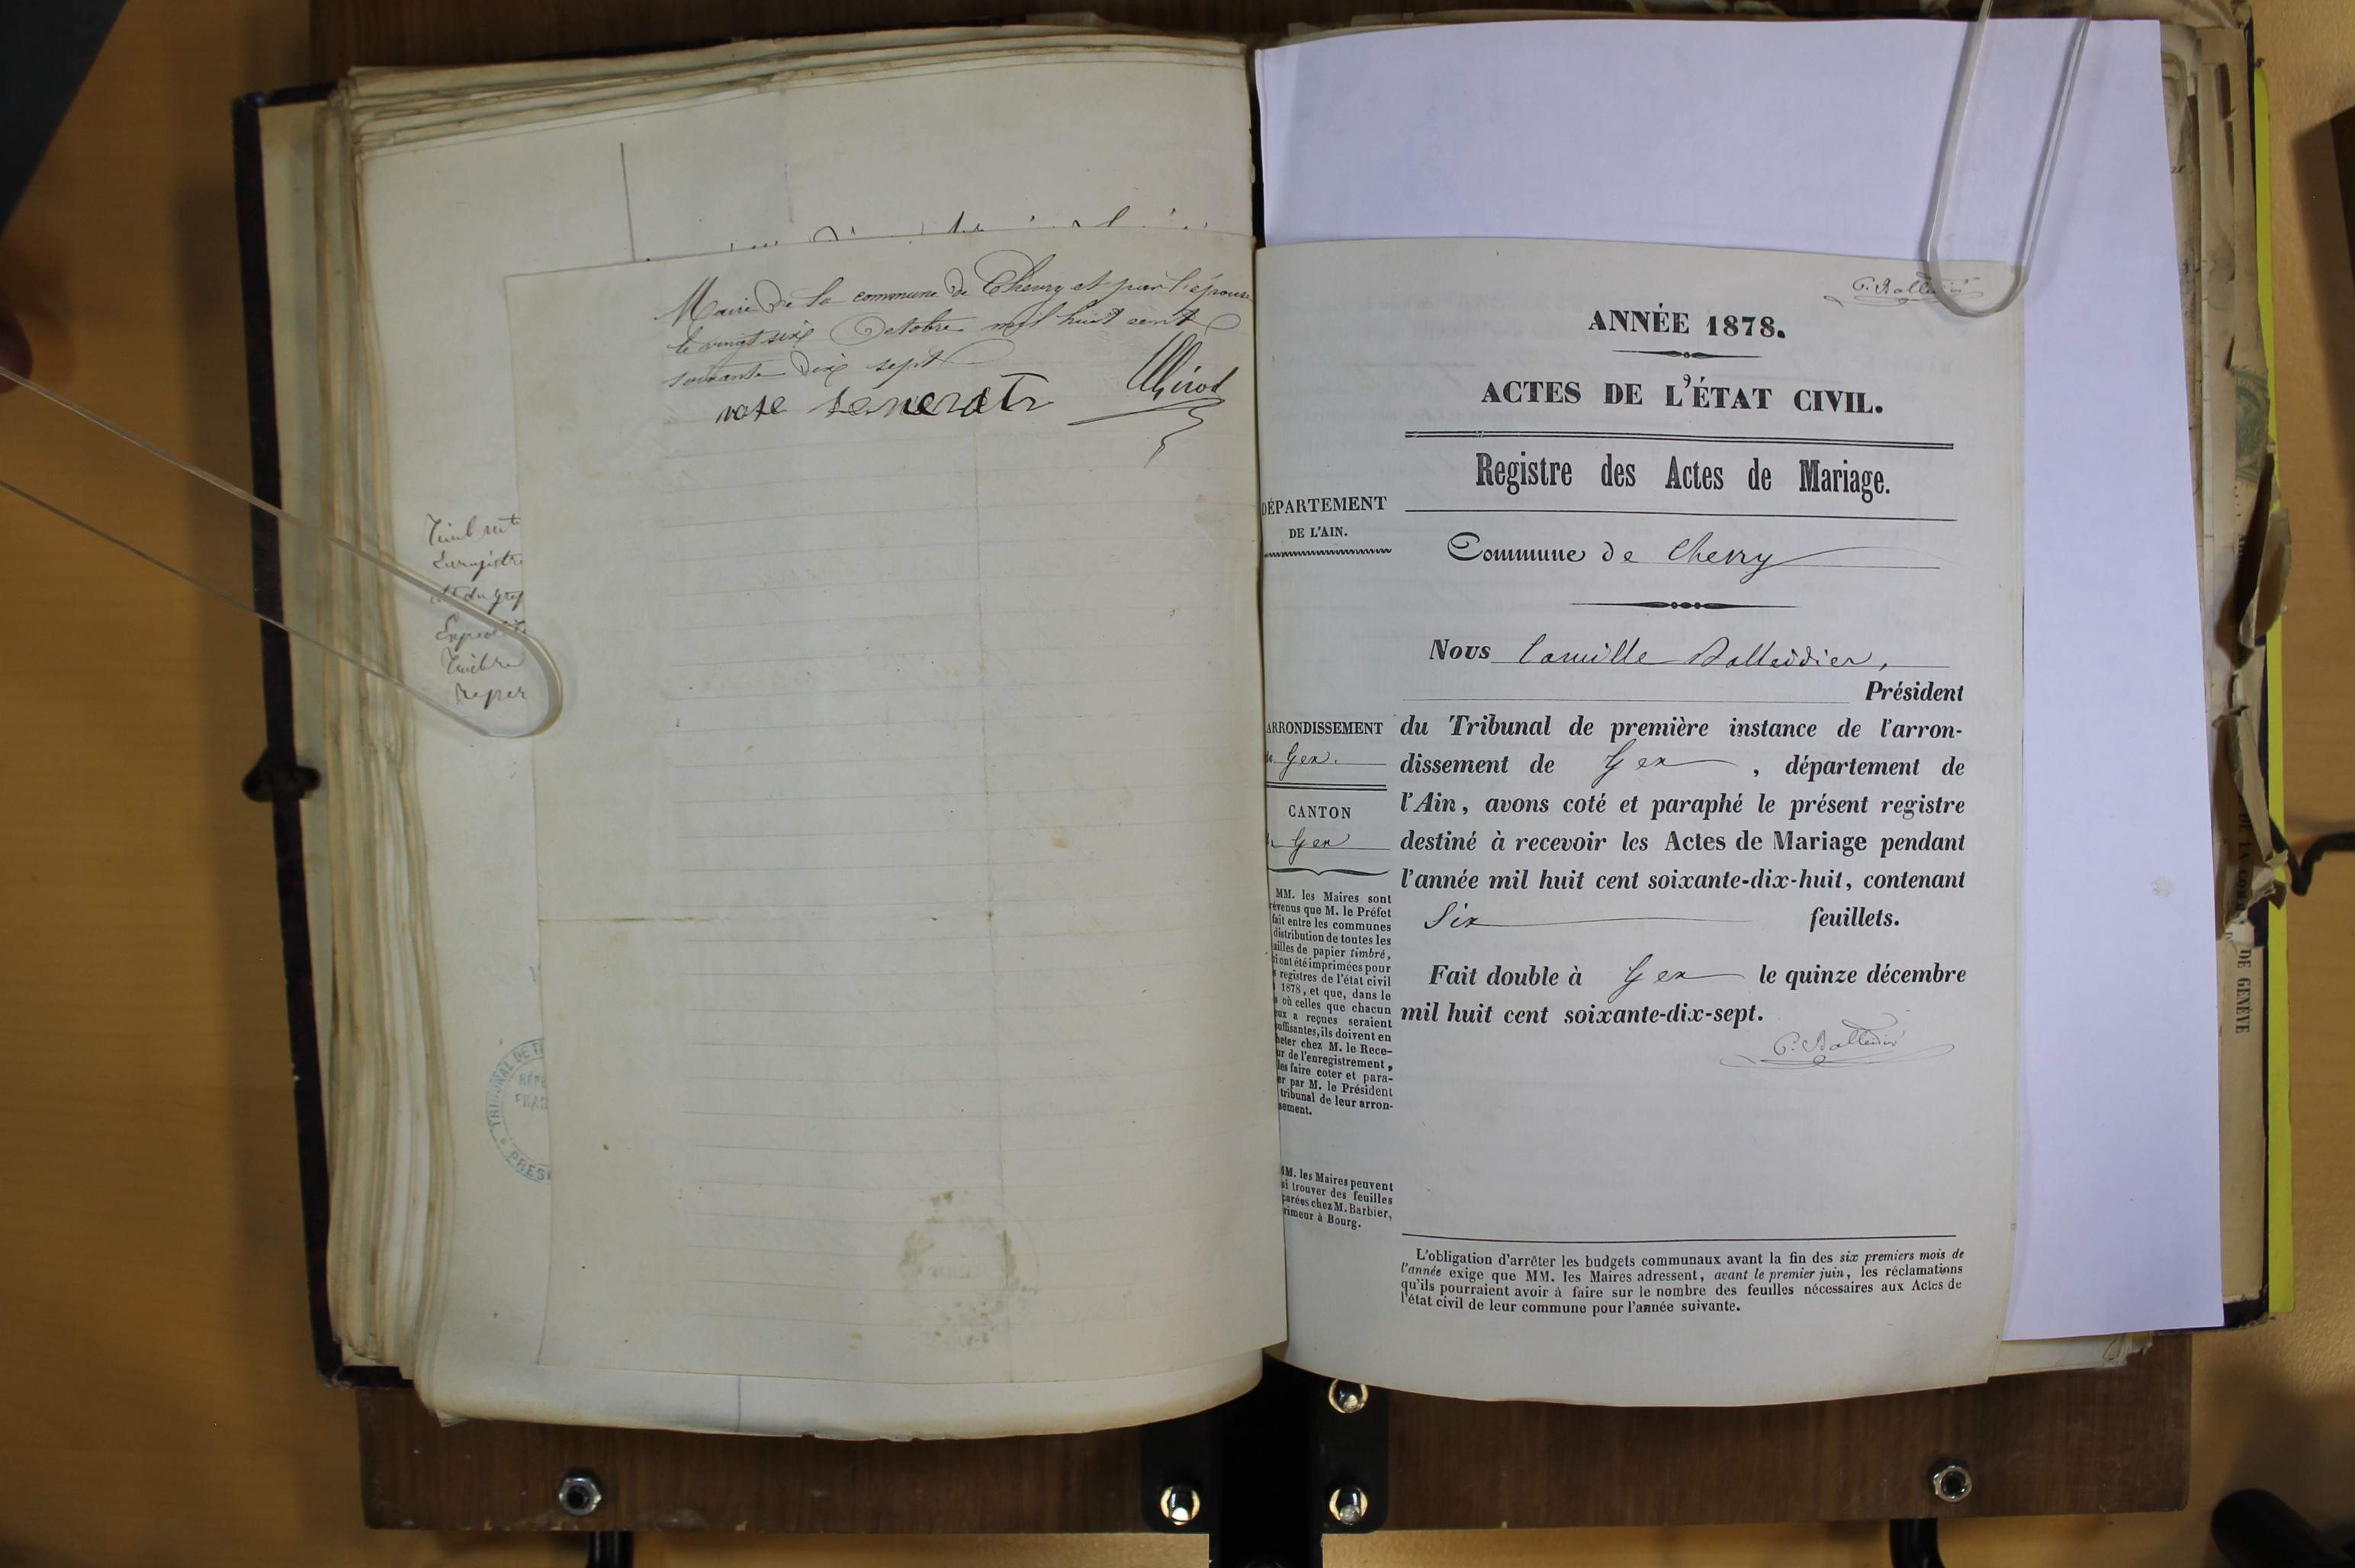 Maire de la commune de Chevry et par l'épouse
le vingt six Octobre mil huit cent
soixante dix sept
rose
Girod
Timbre
Enregistre
Expedit
Timbre
TRIBUNAL DE
RÉP
FRA
PRES
ANNÉE 1878.
ACTES DE L'ÉTAT CIVIL.
Registre des Actes de Mariage.
DÉPARTEMENT
DE L'AIN.
Commune de Chevry
Nous Camille Balleidier,
Président
ARRONDISSEMENT
Gex.
CANTON
Gex
du Tribunal de première instance de l'arron-
dissement de Gex, département de
l'Ain, avons coté et paraphé le présent registre
destiné à recevoir les Actes de Mariage pendant
l'année mil huit cent soixante-dix-huit, contenant
Six feuillets.
Fait double à Gex le quinze décembre
mil huit cent soixante-dix-sept.
C. Balleidier
MM. les Maires sont
évenus que M. le Préfet
fait entre les communes
distribution de toutes les
uilles de papier timbré,
i ont été imprimées pour
s registres de l'état civil
1878, et que, dans le
s où celles que chacun
eux a reçues seraient
suffisantes, ils doivent en
heter chez M. le Rece-
ur de l'enregistrement,
les faire coter et para-
er par M. le Président
tribunal de leur arron-
sement.
MM. les Maires peuvent
si trouver des feuilles
parées chez M. Barbier,
rimeur à Bourg.
L'obligation d'arrêter les budgets communaux avant la fin des six premiers mois de
l'année exige que MM. les Maires adressent, avant le premier juin, les réclamations
qu'ils pourraient avoir à faire sur le nombre des feuilles nécessaires aux Actes de
l'état civil de leur commune pour l'année suivante.
DE GENÈVE